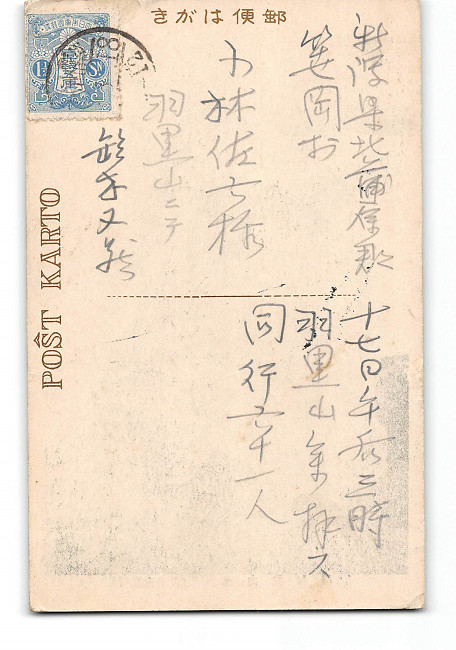 きがは便郵
新潟県北蒲原郡
笠岡村
小林佐七様
羽黒山ニテ
鈴木又
POŜT KARTO
1½ SN
十七日午后三時
羽黒山参拝ス
同行五十一人